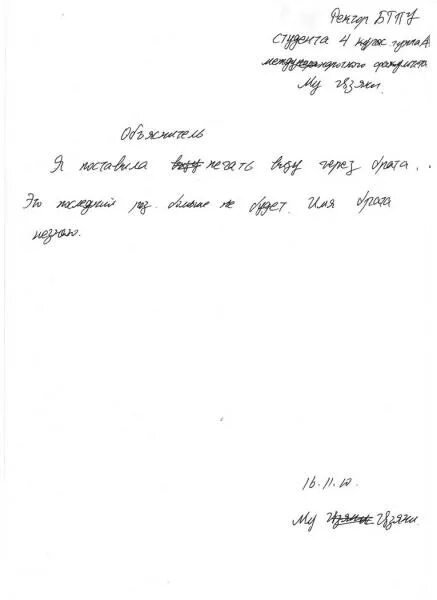 Ректор БТПУ
студента 4 курс группа А
международного факультета
Му Цзяки.
Объяснитель
Я поставила визу печать визу через брата..
Это последний раз. больше не будет. Имя брата
незнаю.
16.11.10.
Му Цзяки Цзяки.